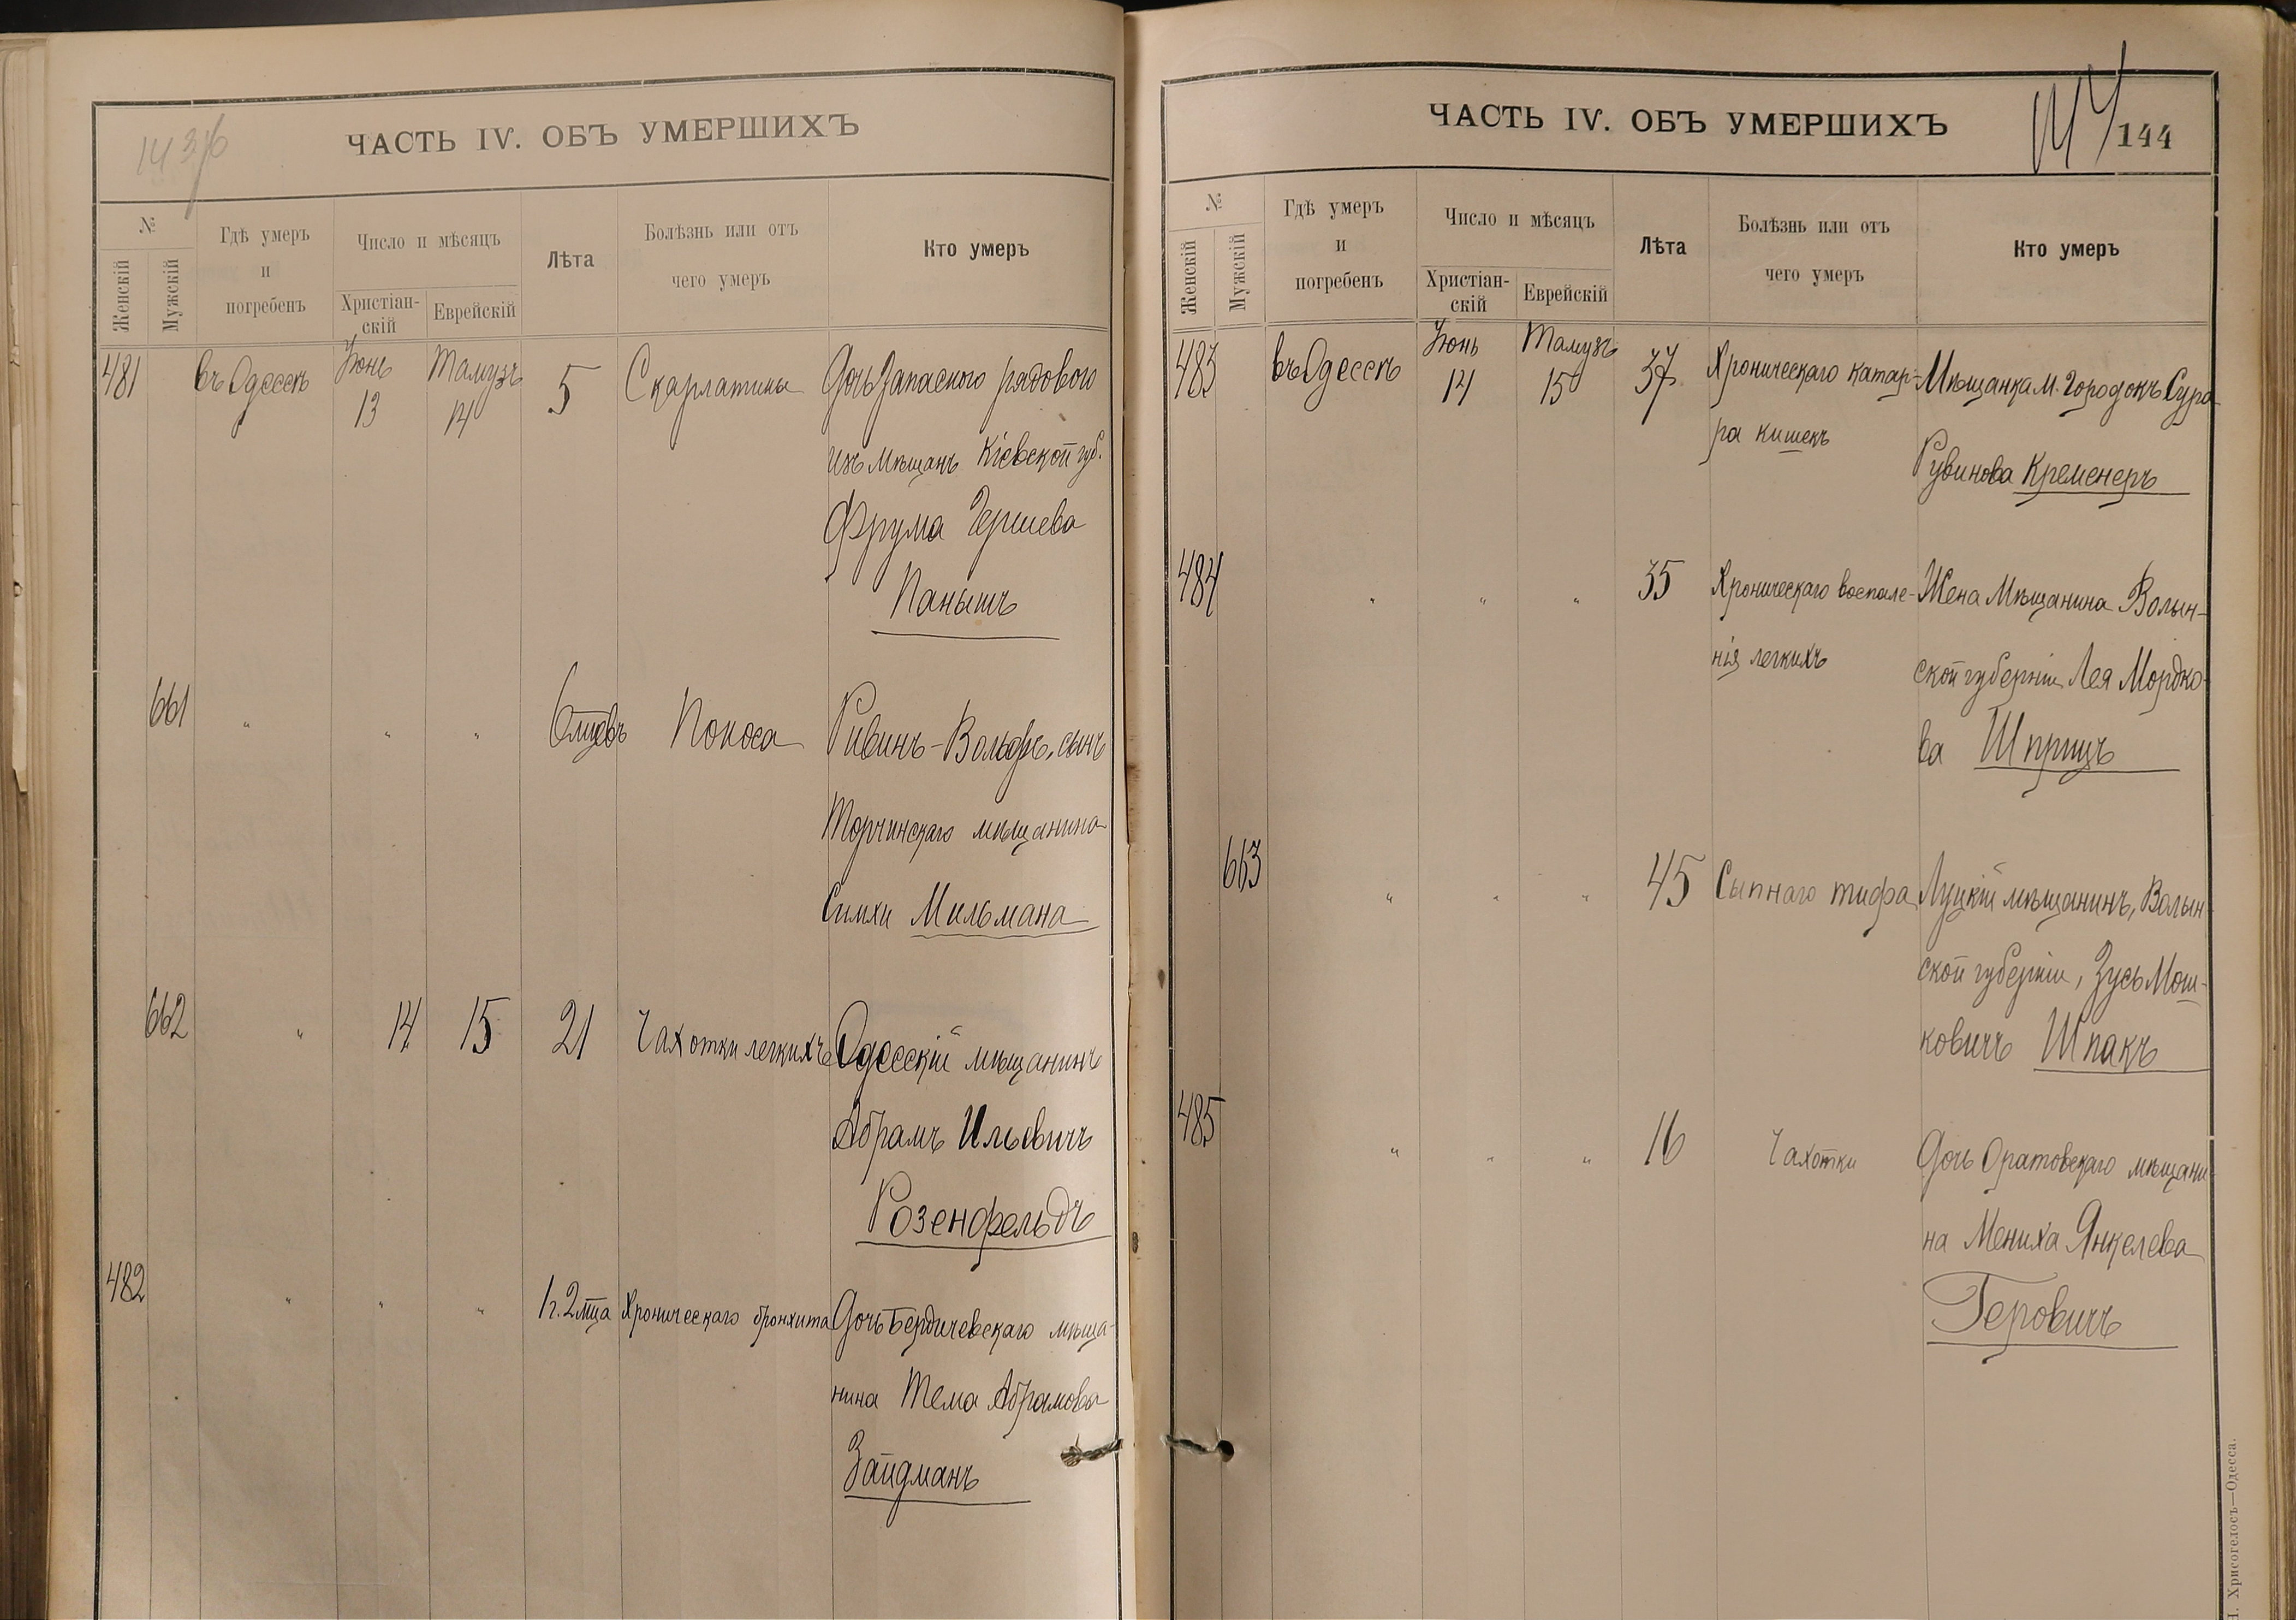 143/б
ЧАСТЬ IV. ОБЪ УМЕРШИХЪ
№
Женскій
Мужскій
Гдѣ умеръ
и
погребенъ
Число и мѣсяцъ
Христіан-
скій
Еврейскій
Лѣта
Болѣзнь или отъ
чего умеръ
Кто умеръ
481 въ Одессѣ Іюнь 13 Тамузъ 14 5 Скарлатины Дочь запасного рядового
изъ мѣщанъ Кіевской губ.
Фрума Гершева
Панышъ
661 " " " 6 мцевъ Поноса Ривинъ-Вольфъ, сынъ
Торчинскаго мѣщанина
Симхи Мильмана
662 " 14 15 21 Чахотки легкихъ Одесскій мѣщанинъ
Абрамъ Ильевичъ
Розенфельдъ
482 " " " 1 г. 2 мца Хроническаго бронхита Дочь Бердичевскаго мѣща-
нина Тема Абрамова
Зайдманъ
ЧАСТЬ IV. ОБЪ УМЕРШИХЪ
144
144
№
Женскій
Мужскій
Гдѣ умеръ
и
погребенъ
Число и мѣсяцъ
Христіан-
скій
Еврейскій
Лѣта
Болѣзнь или отъ
чего умеръ
Кто умеръ
483 въ Одессѣ Іюнь 14 Тамузъ 15 37 Хроническаго катар- Мѣщанка м. Городокъ Сура
ра кишекъ Рувинова Кременеръ
484 " " " 35 Хроническаго воспале- Жена Мѣщанина Волын-
нія легкихъ ской губерніи Лея Мордко-
ва Шприцъ
663 " " " 45 Сыпнаго тифа Луцкій мѣщанинъ, Волын-
ской губерніи, Зусь Мош-
ковичъ Шпакъ
485 " " " 16 Чахотки Дочь Оратовскаго мѣщани-
на Мениха Янкелева
Геровичъ
Хрисогелосъ—Одесса.